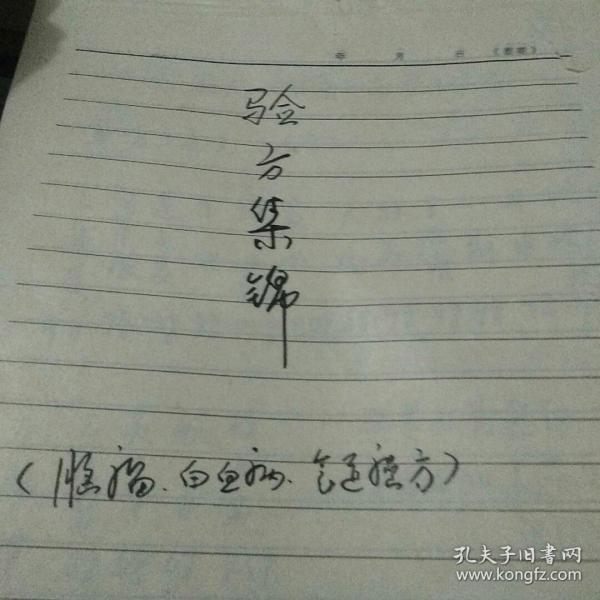 年 月 日
验
方
集
锦
(肿瘤、白血病、食道癌方)
孔夫子旧书网
www.kongfz.com